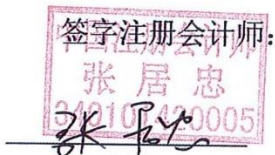 签字注册会计师：
中国注册会计师
张居忠
340101420005
张居忠